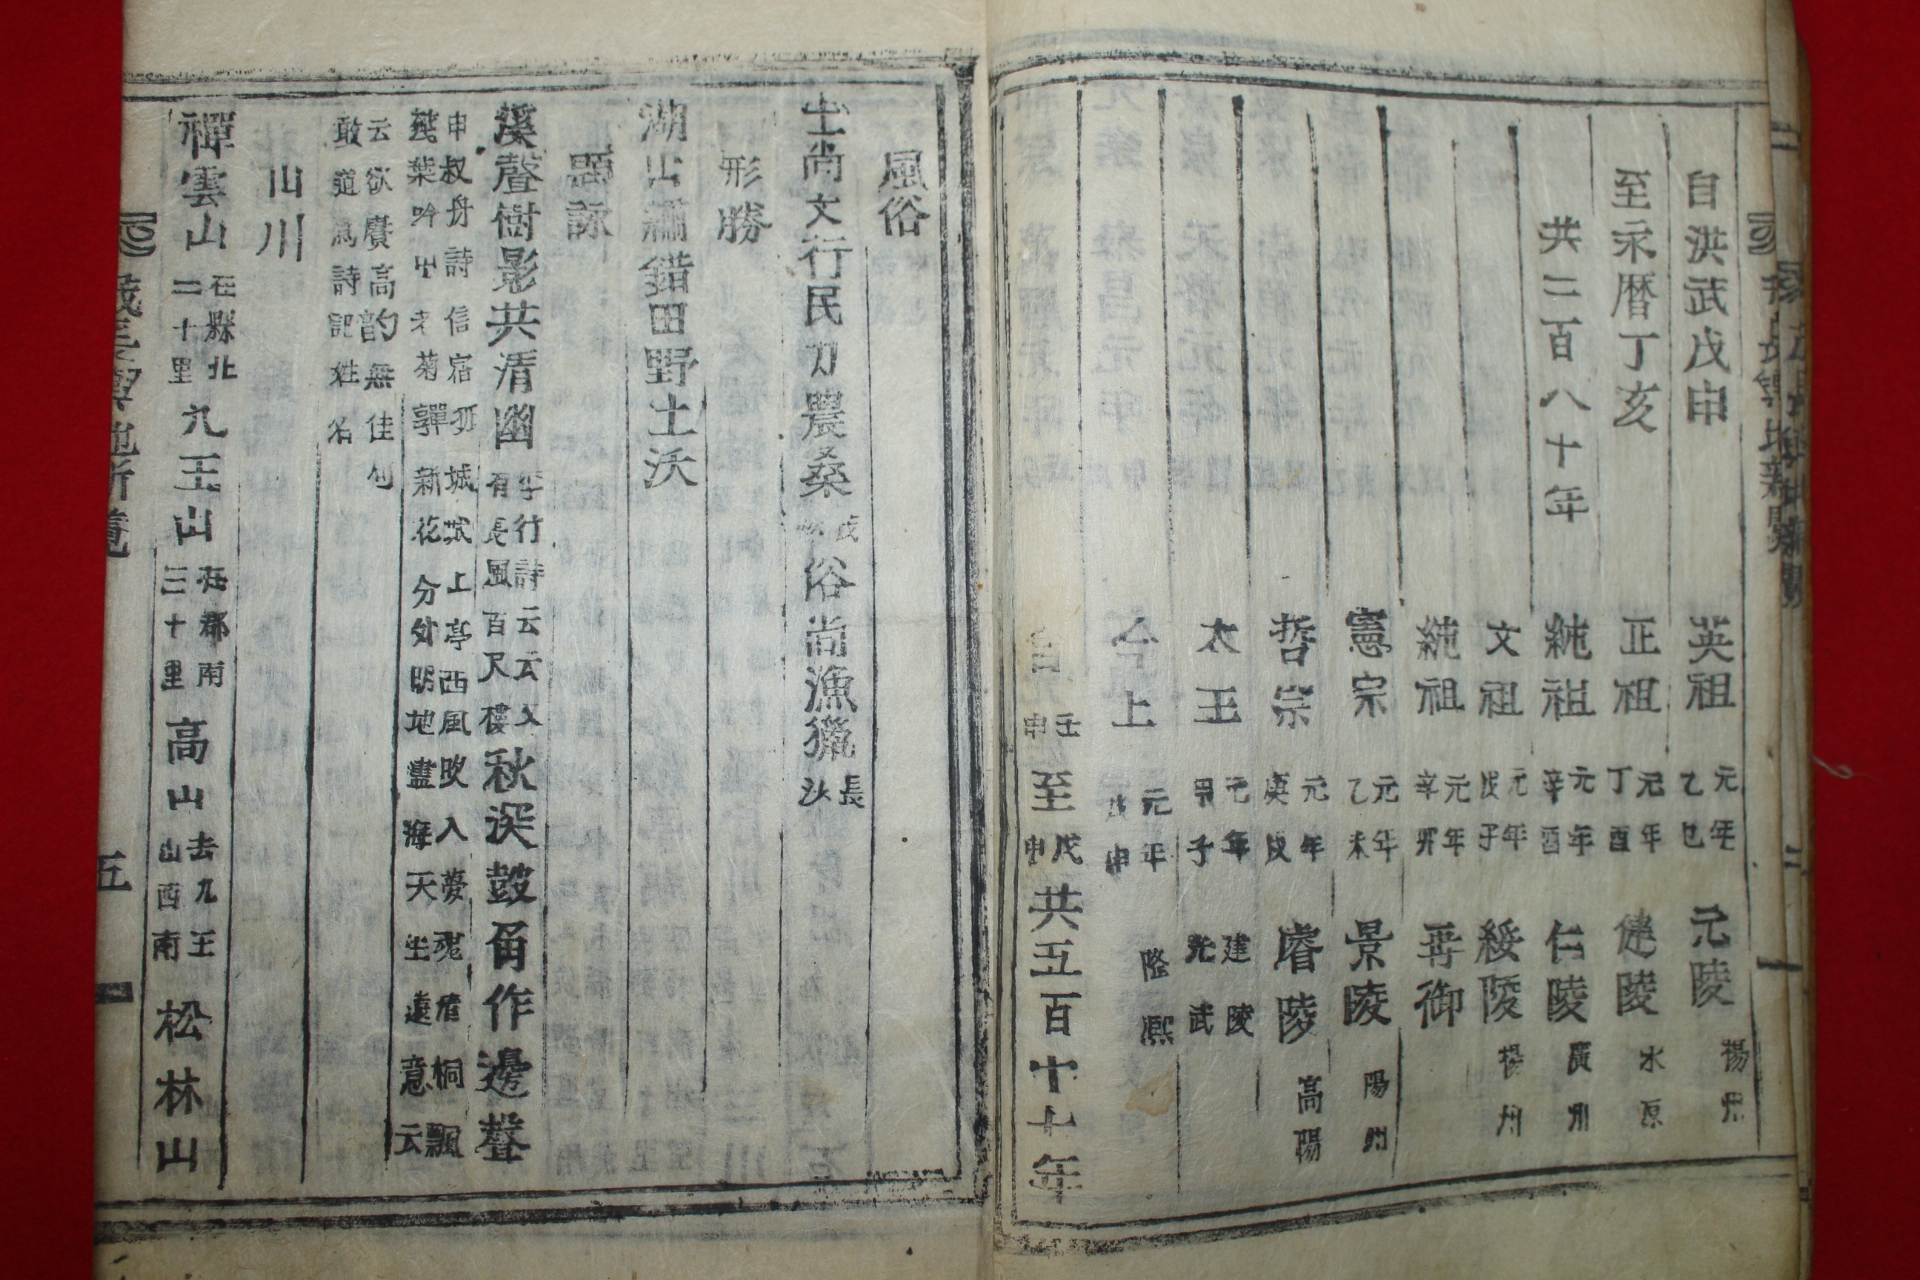 自洪武戊申 英祖 元年乙巳 元陵 楊州
至永曆丁亥 正祖 元年丁酉 健陵 水原
共二百八十年 純祖 元年辛酉 仁陵 廣州
文祖 元年戊子 綏陵 楊州
純祖 元年辛卯 再御
憲宗 元年乙未 景陵 陽州
哲宗 元年庚戌 睿陵 高陽
太王 元年甲子 建陵 光武
今上 元年戊申 隆熙
自 壬申 至 戊申 共五百十七年
風俗
士尚文行民力農桑 俗尚漁獵 長
形勝
湖山繡錯田野土沃
題詠
溪聲樹影共清幽 李行詩云云又有長風百尺樓 秋深鼓角作邊聲
申叔舟詩信宿 城 上亭西風吹入夢魂 桐飄
葉吟中老菊 新花分外明地盡海天 遠意云
云欲賡高韵無佳句
敢道為詩記姓名
山川
禪雲山 在縣北二十里 九王山 在郡南三十里 高山 去九王山西南 松林山
茂長輿地新覽
五